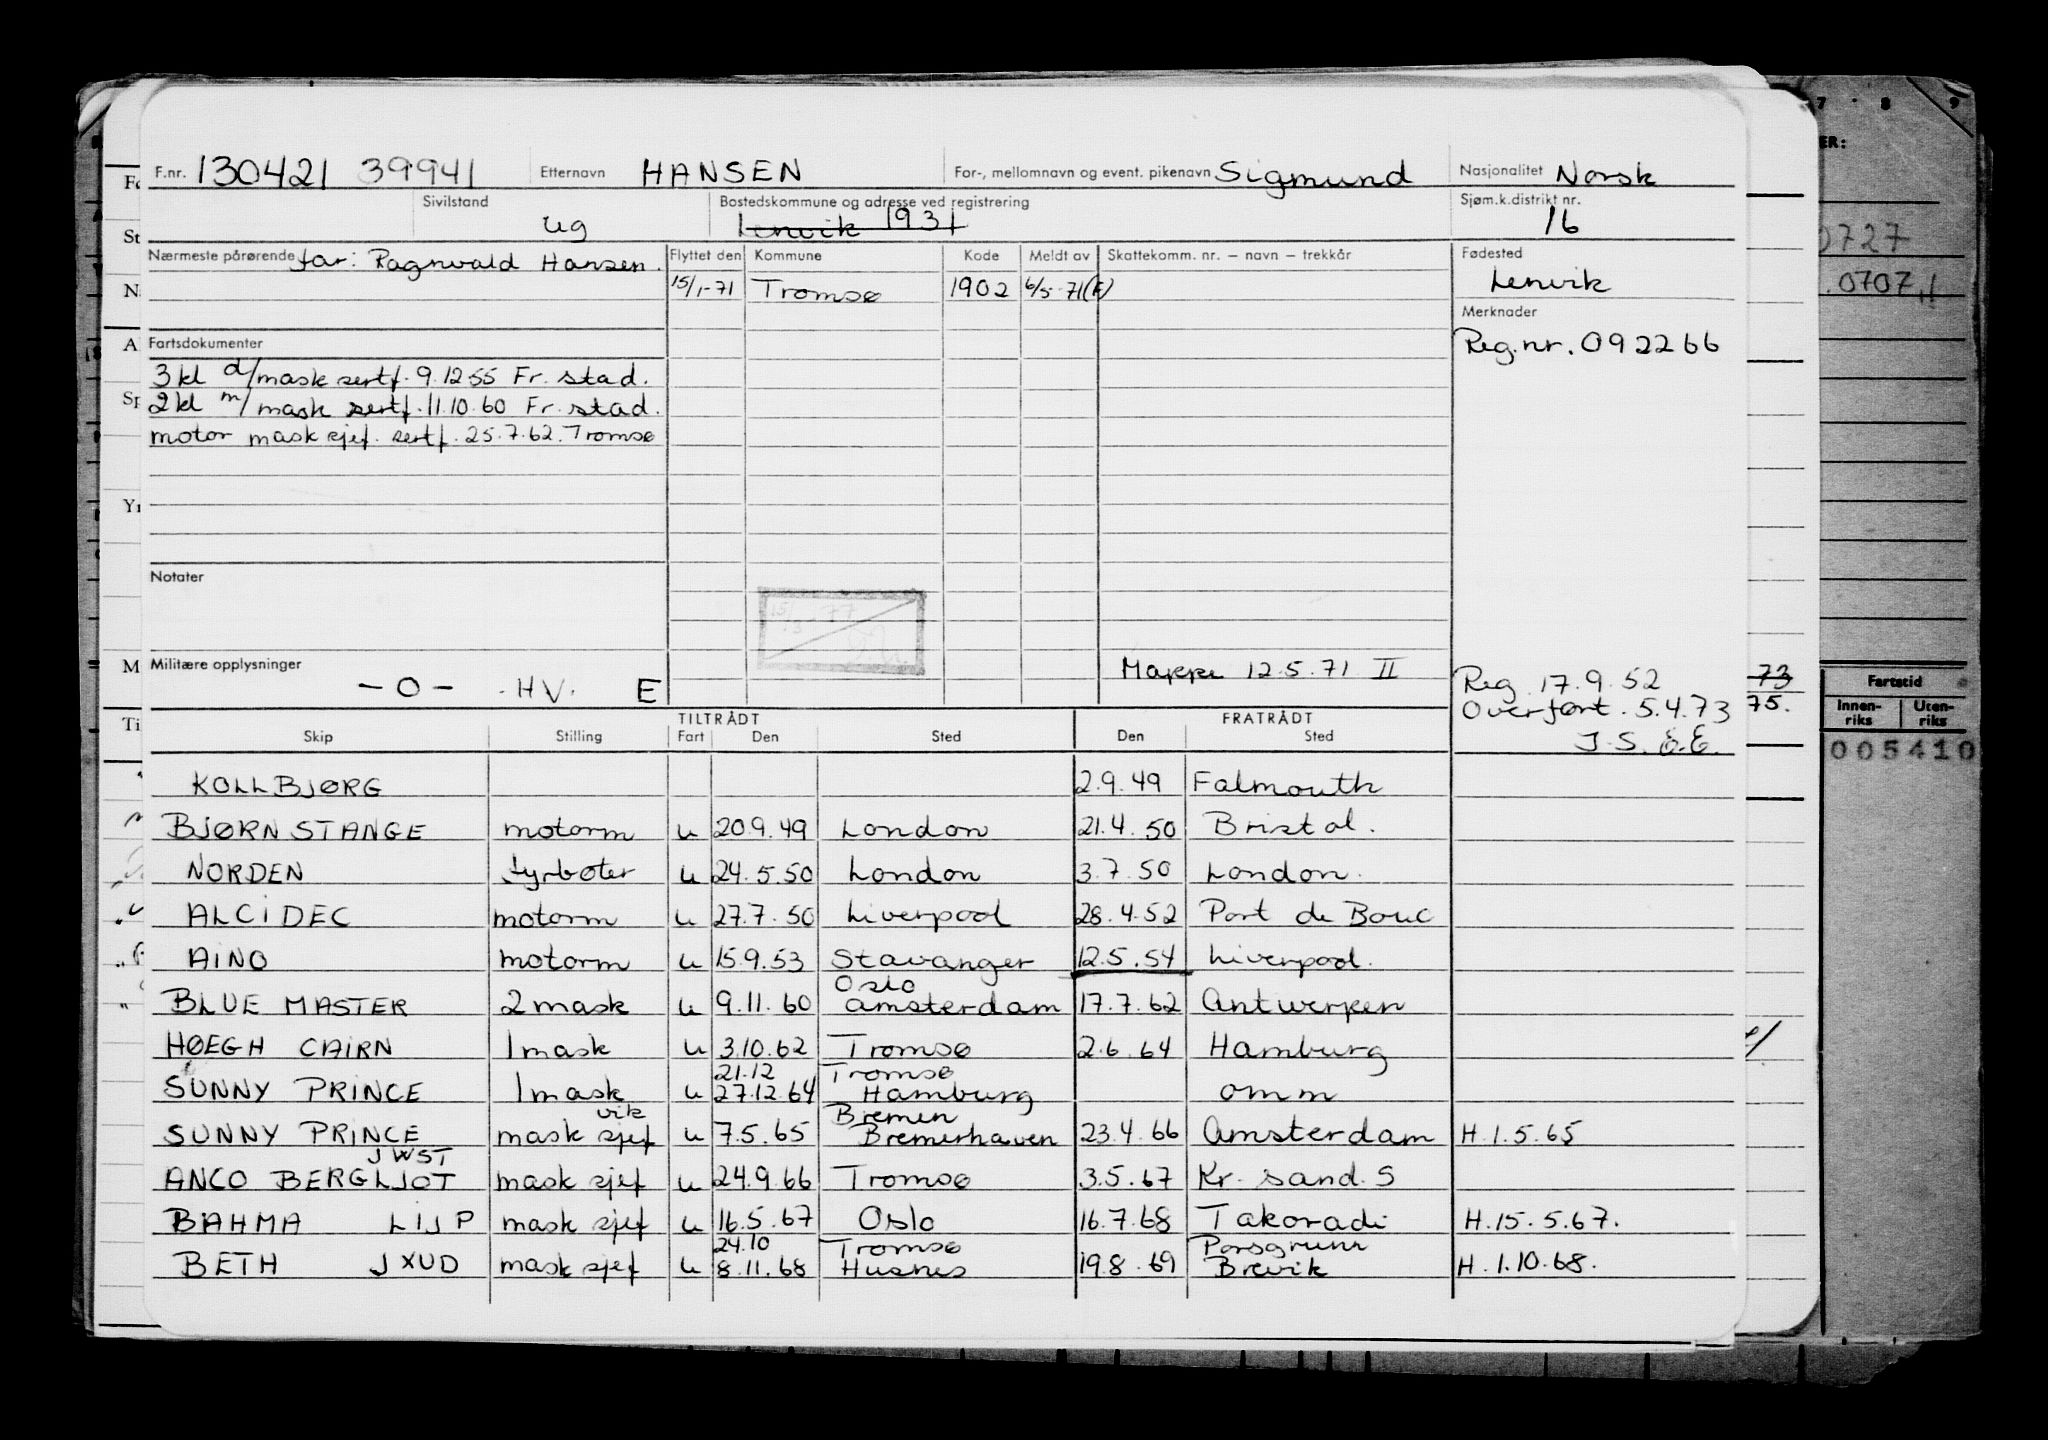 F.nr. 130421 39941 Etternavn HANSEN For-, mellomnavn og event. pikenavn Sigmund Nasjonalitet Norsk
Sivilstand ug Bostedskommune og adresse ved registrering Lenvik 1931 Sjøm.k.distrikt nr. 16
Nærmeste pårørende far: Ragnvald Hansen. Flyttet den Kommune Kode Meldt av Skattekomm. nr. – navn – trekkår Fødested
15/1-71 Tromsø 1902 6/5-71(F) Lenvik
Merknader
Fartsdokumenter Reg.nr. 092266
3 kl d/mask sertf. 9.12.55 Fr. stad.
2 kl m/mask sertf. 11.10.60 Fr. stad.
motor mask sjef. sertf. 25.7.62. Tromsø
Notater
15/3-77
Militære opplysninger
- O - HV. E
Mappe 12.5.71 II
Reg. 17.9.52
Overført. 5.4.73
J.S. E.E.
TILTRÅDT FRATRÅDT
Skip Stilling Fart Den Sted Den Sted
KOLLBJØRG 2.9.49 Falmouth
BJØRN STANGE motorm u 20.9.49 London 21.4.50 Bristol.
NORDEN fyrbøter u 24.5.50 London 3.7.50 London.
ALCIDEC motorm u 27.7.50 Liverpool 28.4.52 Port de Bouc
AINO motorm u 15.9.53 Stavanger 12.5.54 Liverpool.
Oslo
BLUE MASTER 2 mask u 9.11.60 Amsterdam 17.7.62 Antwerpen
HØEGH CAIRN 1 mask u 3.10.62 Tromsø 2.6.64 Hamburg
21.12 Tromsø
SUNNY PRINCE 1 mask u 27.12.64 Hamburg omm
vik Bremen
SUNNY PRINCE mask sjef u 7.5.65 Bremerhaven 23.4.66 Amsterdam H.1.5.65
JWST
ANCO BERGLJOT mask sjef u 24.9.66 Tromsø 3.5.67 Kr. sand. S
BAHMA LIJP mask sjef u 16.5.67 Oslo 16.7.68 Takoradi H.15.5.67.
24.10 Tromsø Porsgrunn
BETH JXUD mask sjef u 8.11.68 Husnes 19.8.69 Brevik H.1.10.68.
7 8 9
ER:
0727
0707
73
75.
Fartstid
Innen-riks Uten-riks
005410
St
N
A
Sp
M
Ti